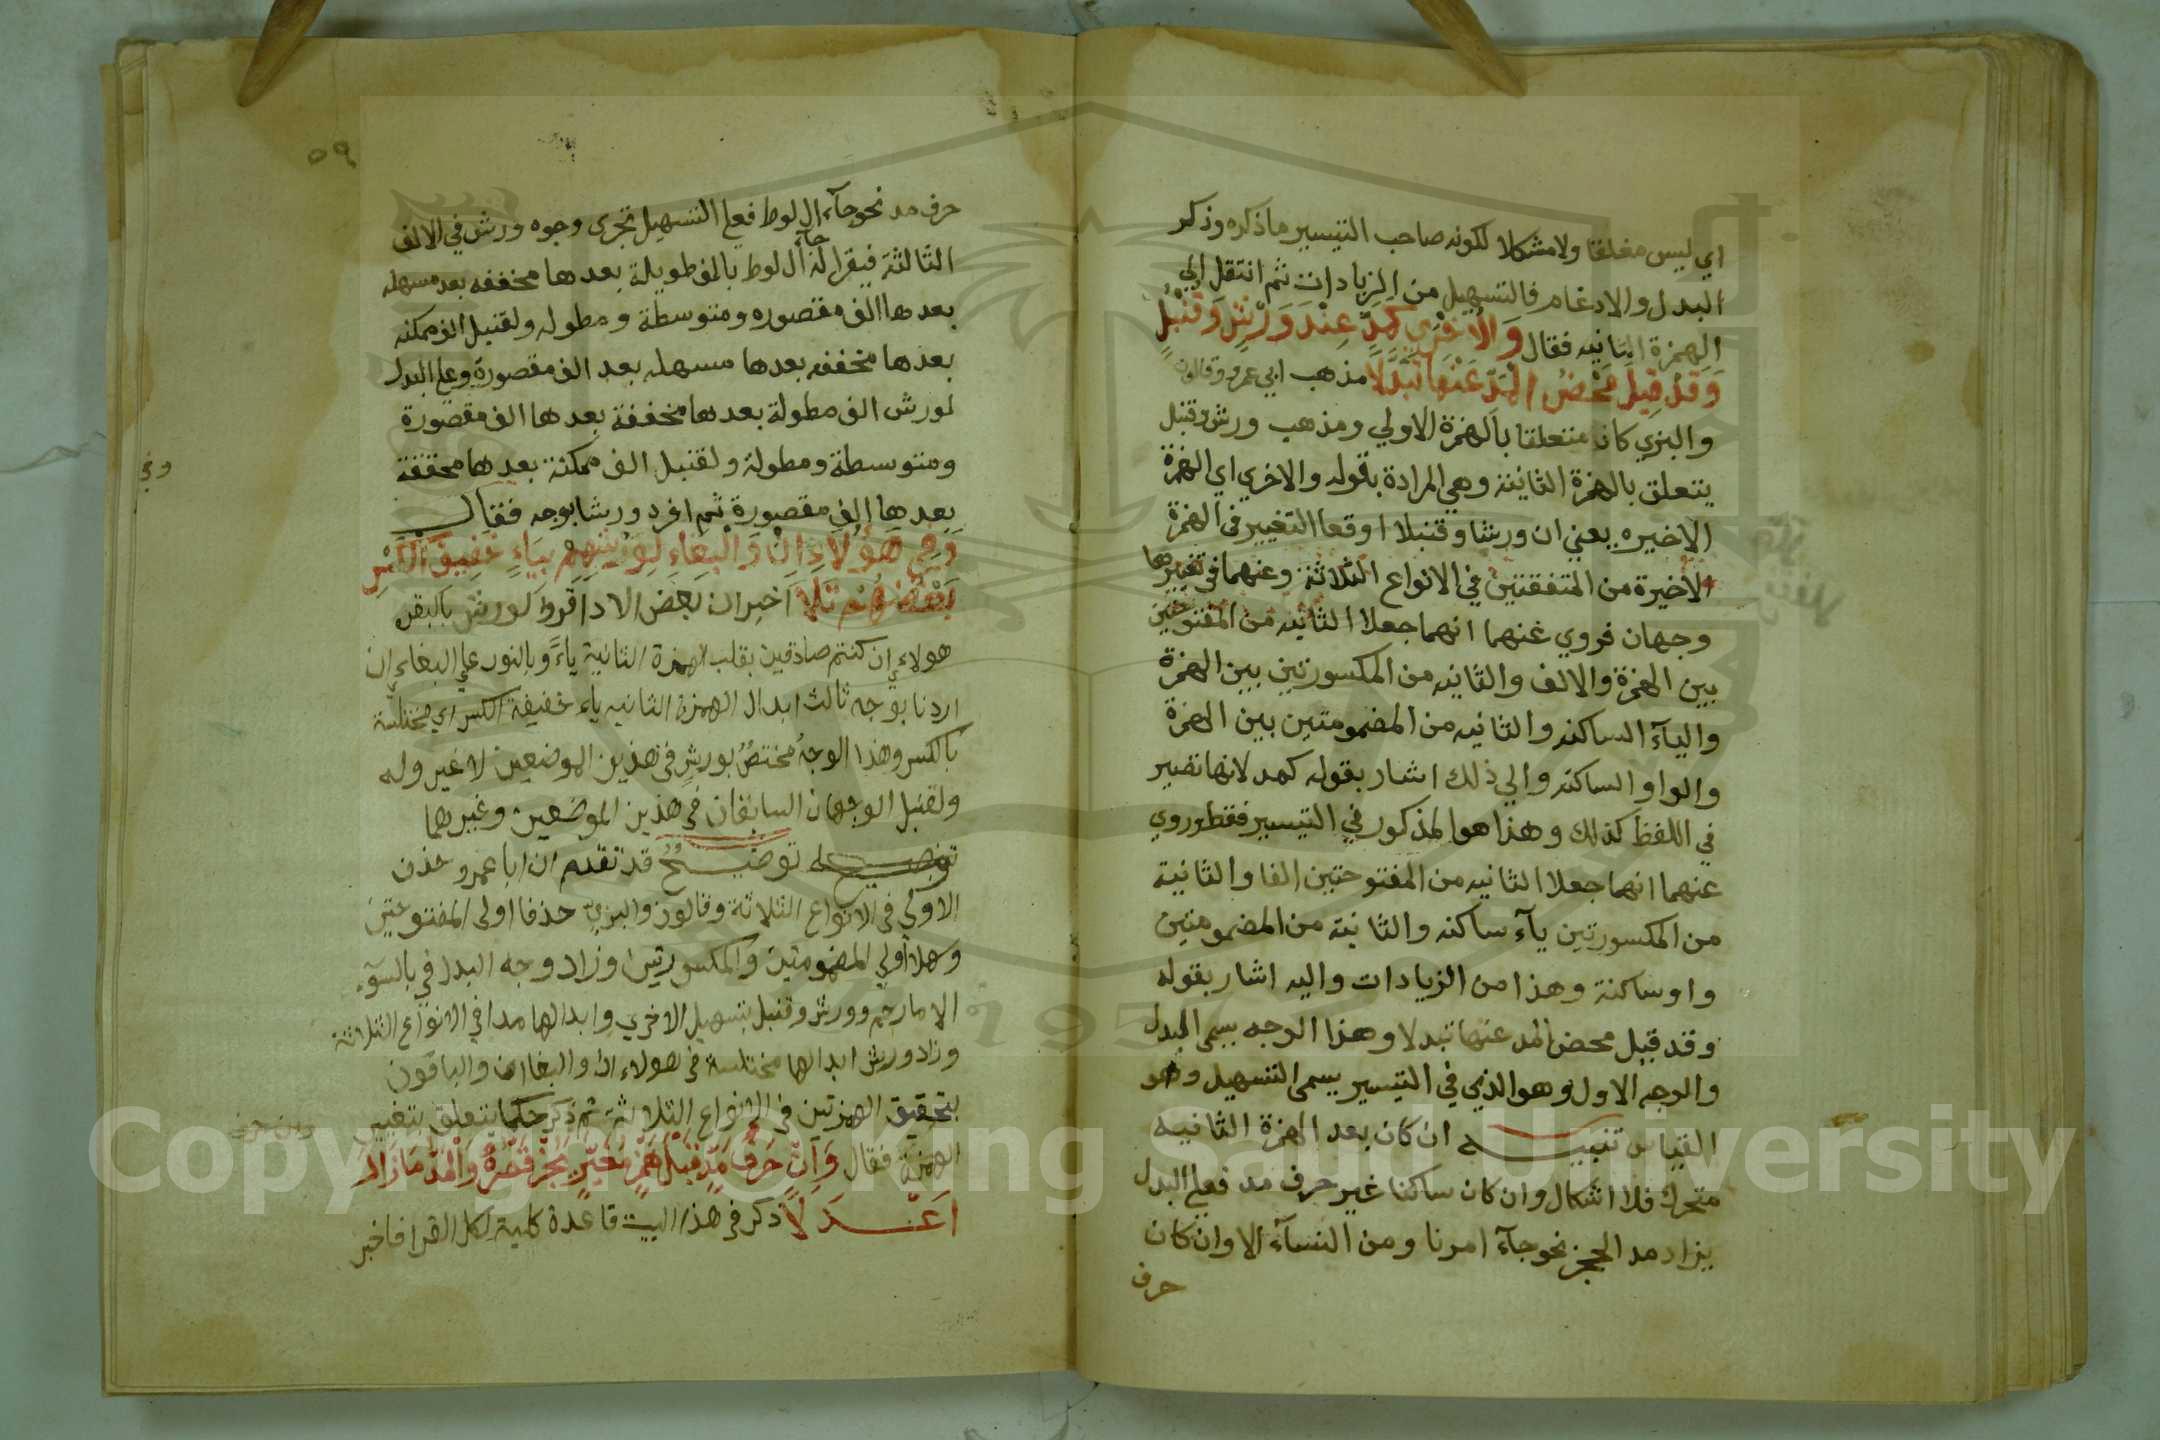 اي ليس مغلقا ولا مشكلا لكونه صاحب التيسير ما ذكره وذكر
البدل والادغام فالتسهيل من الزيادات ثم انتقل الي
الهمزة الثانيه فقال وَالأُخْرَي كَمَدٍّ عِنْدَ وَرْشٍ وَقُنْبُلٍ
وَقَدْ قِيلَ مَحْضُ الْمَدِّ عَنْهَا تَبَدَّلَا مذهب ابي عمرو وقالون
والبزي كان متعلقا بالهمزة الاولي ومذهب ورش وقنبل
يتعلق بالهمزة الثانية وهي المرادة بقوله والاخري اي الهمزة
الاخيره يعني ان ورشا وقنبلا اوقعا التغيير في الهمزة
الاخيرة من المتفقتين في الانواع الثلاثة وعنهما في تغييرها
وجهان فروي عنهما انهما جعلا الثانيه من المفتوحتين
بين الهمزة والالف والثانيه من المكسورتين بين الهمزة
واليآء الساكنه والثانيه من المضمومتين بين الهمزة
والواو الساكنه والي ذلك اشار بقوله كمد لانها تصير
في اللفظ كذلك وهذا هو المذكور في التيسير فقط وروي
عنهما انهما جعلا الثانيه من المفتوحتين الفا والثانية
من المكسورتين يآء ساكنه والثانية من المضمومتين
واو ساكنة وهذا من الزيادات واليه اشار بقوله
وقد قيل محض المد عنها تبدلا وهذا الوجه يسمي البدل
والوجه الاول وهو الذي في التيسير يسمي التسهيل وهو
القياس تنبيه ان كان بعد الهمزة الثانيه
متحرك فلا اشكال وان كان ساكنا غير حرف مد فعلي البدل
يزاد مد الحجز نحو جآء امرنا ومن النسآء الا وان كان
حرف
٥٩
حرف مد نحو جآء ال لوط فعلي التسهيل تجري وجوه ورش في الالف
الثالثة فيقرا له جآء ال لوط بالف طويلة بعدها مخففه بعد مسهله
بعدها الف مقصوره ومتوسطة ومطوله ولقنبل الف ممكنه
بعدها مخففه بعدها مسهله بعد الف مقصورة وعلي البدل
لورش الف مطولة بعدها مخففة بعدها الف مقصورة
ومتوسطة ومطولة ولقنبل الف ممكنة بعدها محققة
بعدها الف مقصورة ثم افرد ورشا بوجه فقال
وَفِي هَؤُلَا إِنْ وَالْبِغَاءِ لِوَرْشِهِمْ بِيَاءٍ خَفِيفِ الْكَسْرِ
بَعْضُهُمْ تَلَا اخبر ان بعض الادا اقروا لورش بالبقره
هولاء ان كنتم صادقين بقلب الهمزة الثانية ياءً وبالنور علي البغاء ان
اردنا بوجه ثالث ابدال الهمزة الثانيه ياء خفيفة الكسر اي مختلسة
بالكسر وهذا الوجهُ مختصٌ بورشٍ في هذين الموضعين لا غير وله
ولقنبل الوجهان السابقان في هذين الموضعين وغيرهما
توضيحٌ قد تقدم ان ابا عمرو حذف
الاولي في الانواع الثلاثة وقالون والبزي حذفا اولي المفتوحتين
وسهلا أولي المضمومتين والمكسورتين وزاد وجه البدل في بالسوٓء
الا ما رحم وورش وقنبل بتسهيل الاخري وابدالها مدا في الانواع الثلاثة
وزاد ورش ابدالها مختلسة في هولاء ان والبغا ان والباقون
بتحقيق الهمزتين في الانواع الثلاثة ثم ذكر حكما يتعلق بتغيير
الهمزة فقال وَاِنْ حَرْفُ مَدٍّ قَبْلَ هَمْزٍ مُغَيَّرٍ يَجُزْ قَصْرُهُ وَالْمَدُّ مَا زَالَ
اَعْدَلَا ذكر في هذا البيت قاعدة كلية لكل القرا فاخبر
وفي
Copyright © King Saud University
1957